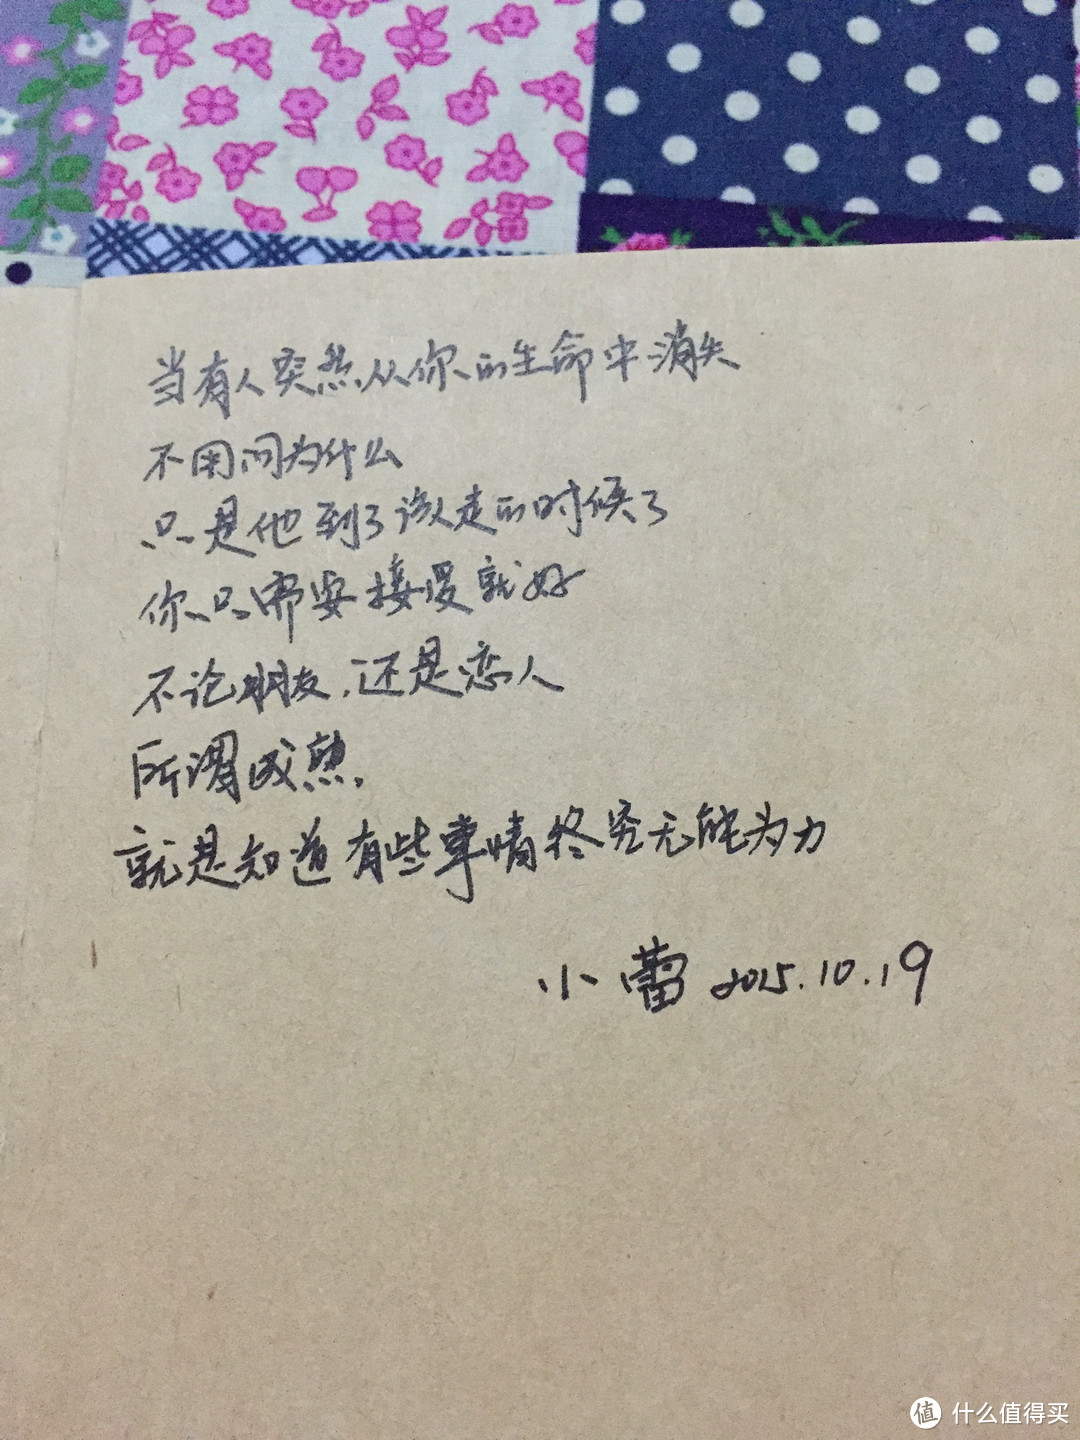 当有人突然从你的生命中消失
不用问为什么
只是他到了该走的时候了
你只需要接受就好
不论朋友，还是恋人
所谓成熟，
就是知道有些事情终究无能为力
小蕾 2015.10.19
值 什么值得买